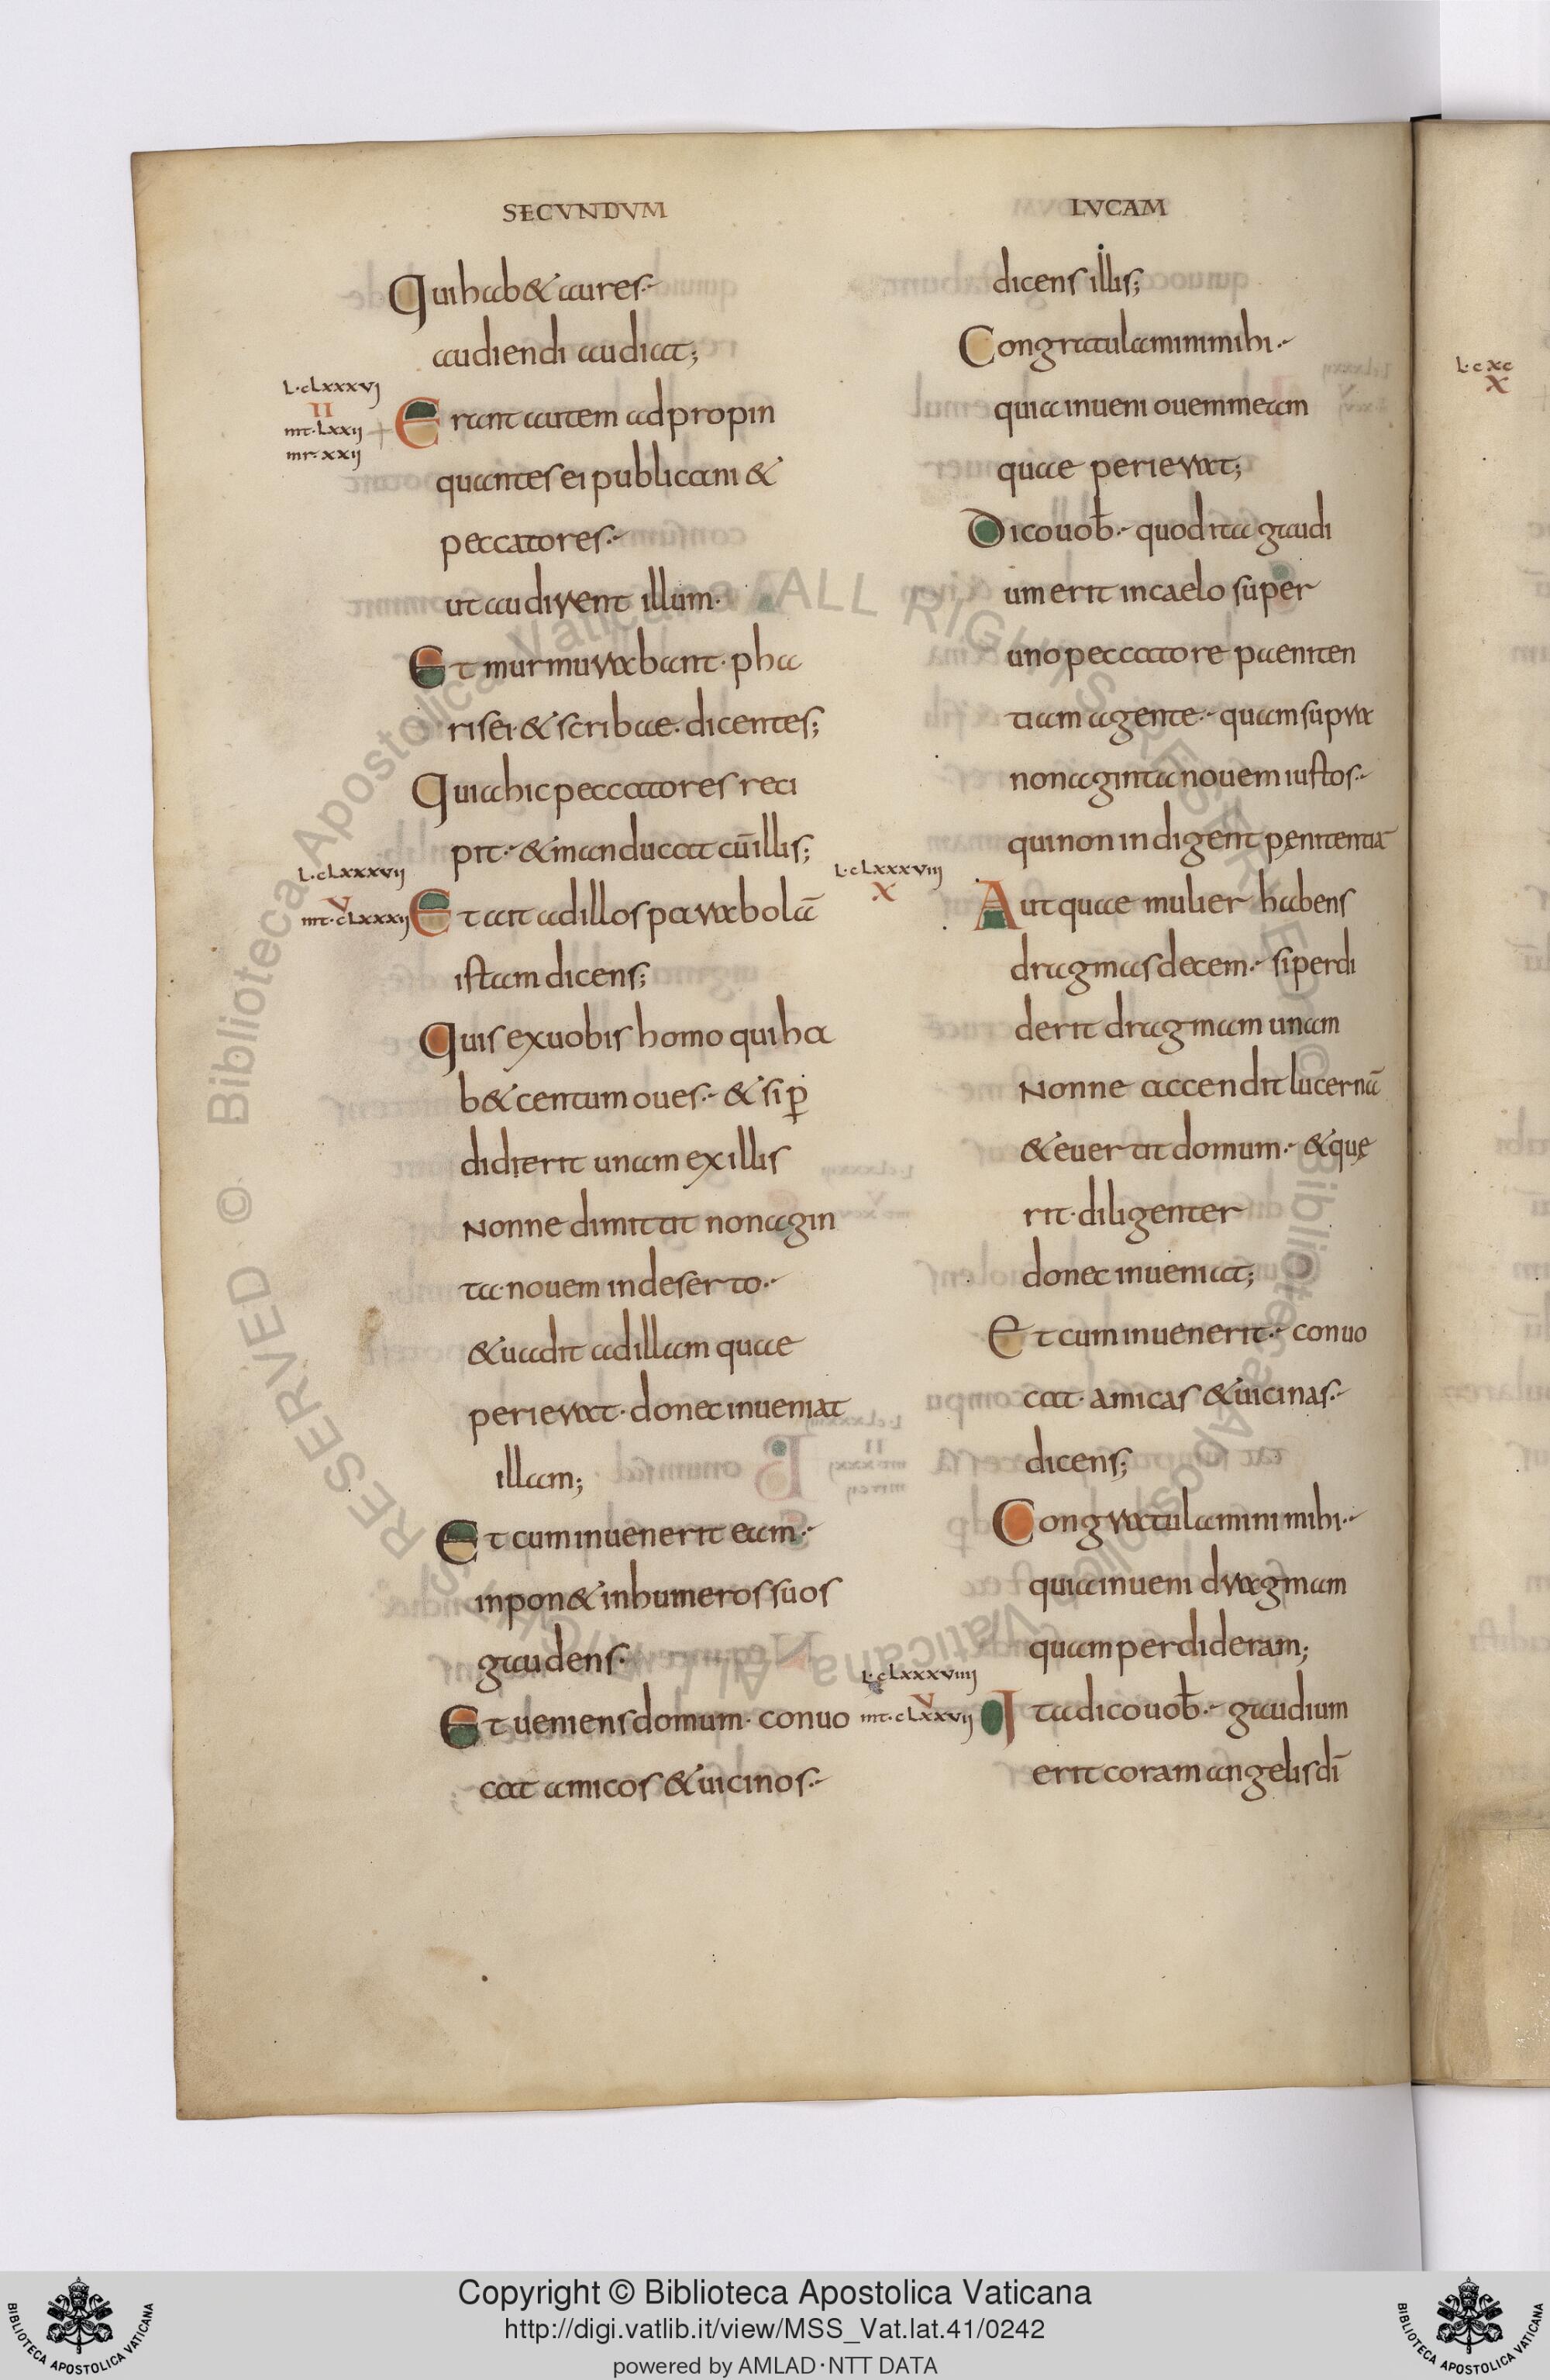 SECUNDUM
Qui hab& aures·
audiendi audiat;
L·cLxxxvj
II
mt·Lxxij
mr·xxij
Erant autem adpropin
quantes ei publicani &
peccatores·
ut audirent illum·
Et murmurabant· pha
risei·& scribae· dicentes;
Quia hic peccatores reci
pit·& manducat cū illis;
L·cLxxxvij
V
mt·cLxxxij
Et ait ad illos parabolā
istam dicens;
Quis ex uobis homo qui ha
b& centum oues·& si p̱
didierit unam ex illis
Nonne dimittit nonagin
ta·nouem in deserto·
& uadit ad illam quae
perierat· donec inueniat
illam;
Et cum inuenerit eam·
inpon& in humeros suos
gaudens·
Et ueniens domum· conuo
cat amicos & uicinos·
LUCAM
dicens illis;
Congratulamini mihi·
quia inueni ouem meam
quae perierat;
Dico uob̄· quod ita gaudi
um erit in caelo super
uno peccatore paeniten
tiam agente· quam supra
nonaginta nouem iustos·
qui non indigent penitentia
L·cLxxxviij
X
Aut quae mulier habens
dragmas decem· si perdi
derit dragmam unam
Nonne accendit lucernā
& euertit domum· & quę
rit· diligenter
donec inueniat;
Et cum inuenerit· conuo
cat· amicas & uicinas·
dicens;
Congratulamini mihi·
quia inueni dragmam
quam perdideram;
L·cLxxxviiij
V
mt·cLxxvij
Ita dico uob̄· gaudium
erit coram angelis dī
L·cxc
X
© Biblioteca Apostolica Vaticana ALL RIGHTS RESERVED
Copyright © Biblioteca Apostolica Vaticana
http://digi.vatlib.it/view/MSS_Vat.lat.41/0242
powered by AMLAD·NTT DATA
BIBLIOTECA APOSTOLICA VATICANA
BIBLIOTECA APOSTOLICA VATICANA